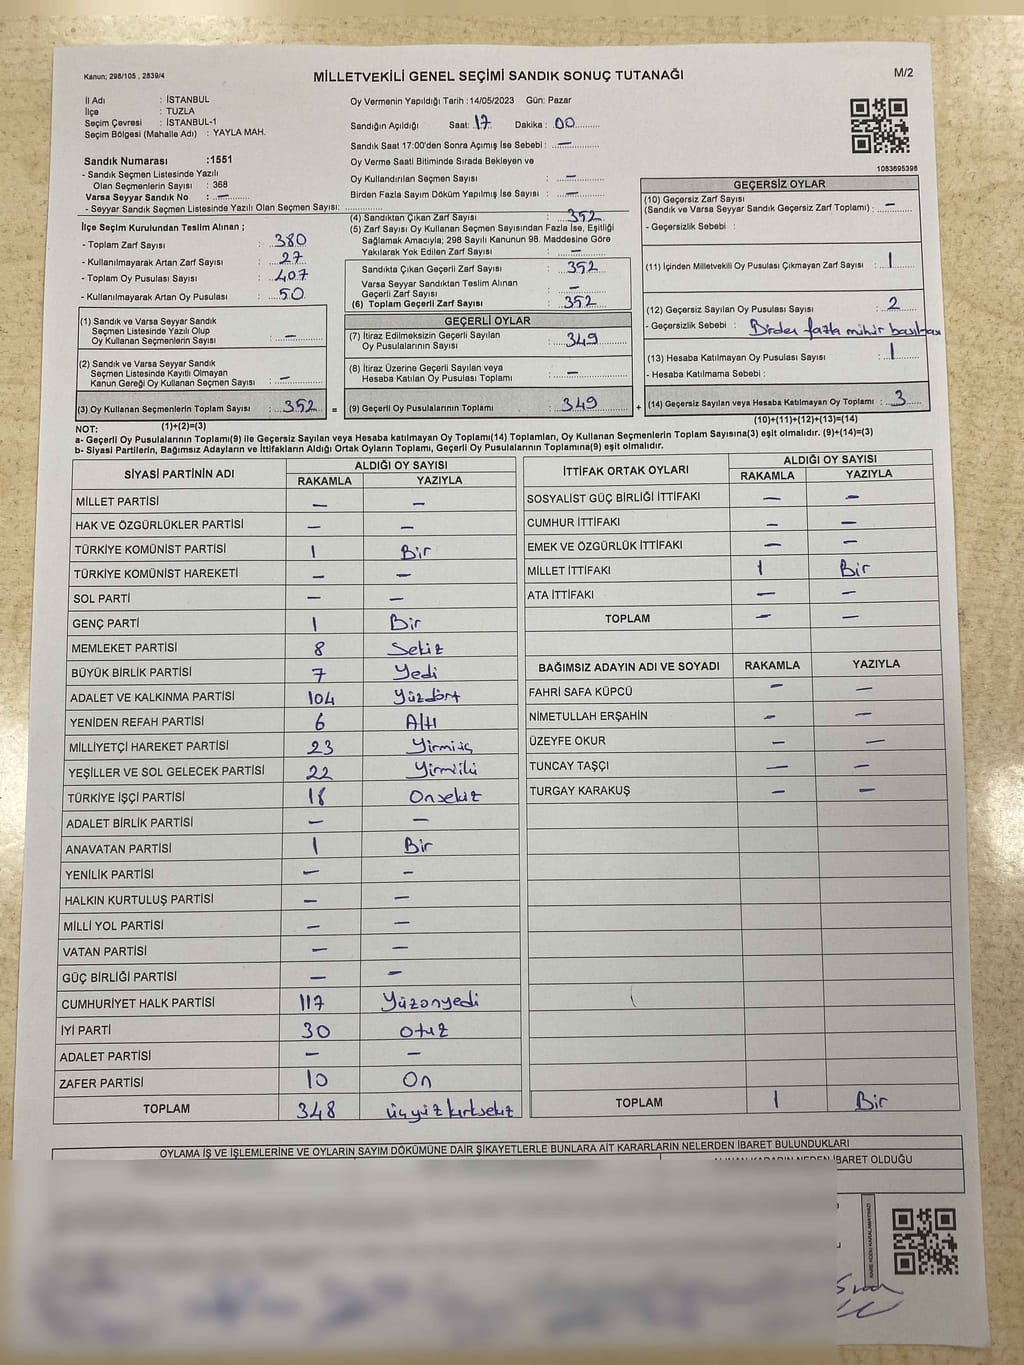 Kanun; 298/105 , 2839/4
MİLLETVEKİLİ GENEL SEÇİMİ SANDIK SONUÇ TUTANAĞI
M/2
İl Adı : İSTANBUL
İlçe : TUZLA
Seçim Çevresi : İSTANBUL-1
Seçim Bölgesi (Mahalle Adı) : YAYLA MAH.
Sandık Numarası :1551
- Sandık Seçmen Listesinde Yazılı
Olan Seçmenlerin Sayısı : 368
Varsa Seyyar Sandık No : —
- Seyyar Sandık Seçmen Listesinde Yazılı Olan Seçmen Sayısı:
İlçe Seçim Kurulundan Teslim Alınan ;
- Toplam Zarf Sayısı : 380
- Kullanılmayarak Artan Zarf Sayısı : 27
- Toplam Oy Pusulası Sayısı : 407
- Kullanılmayarak Artan Oy Pusulası : 50
(1) Sandık ve Varsa Seyyar Sandık
Seçmen Listesinde Yazılı Olup
Oy Kullanan Seçmenlerin Sayısı : —
(2) Sandık ve Varsa Seyyar Sandık
Seçmen Listesinde Kayıtlı Olmayan
Kanun Gereği Oy Kullanan Seçmen Sayısı : —
(3) Oy Kullanan Seçmenlerin Toplam Sayısı : 352 =
(1)+(2)=(3)
Oy Vermenin Yapıldığı Tarih :14/05/2023 Gün: Pazar
Sandığın Açıldığı Saat: 17 Dakika : 00
Sandık Saat 17:00'den Sonra Açımış İse Sebebi : —
Oy Verme Saati Bitiminde Sırada Bekleyen ve
Oy Kullandırılan Seçmen Sayısı : —
Birden Fazla Sayım Döküm Yapılmış İse Sayısı : —
(4) Sandıktan Çıkan Zarf Sayısı : 352
(5) Zarf Sayısı Oy Kullanan Seçmen Sayısından Fazla İse, Eşitliği
Sağlamak Amacıyla; 298 Sayılı Kanunun 98. Maddesine Göre
Yakılarak Yok Edilen Zarf Sayısı : —
Sandıkta Çıkan Geçerli Zarf Sayısı : 352
Varsa Seyyar Sandıktan Teslim Alınan
Geçerli Zarf Sayısı : —
(6) Toplam Geçerli Zarf Sayısı : 352
GEÇERLİ OYLAR
(7) İtiraz Edilmeksizin Geçerli Sayılan
Oy Pusulalarının Sayısı : 349
(8) İtiraz Üzerine Geçerli Sayılan veya
Hesaba Katılan Oy Pusulası Toplamı : —
(9) Geçerli Oy Pusulalarının Toplamı : 349 +
1083695396
GEÇERSİZ OYLAR
(10) Geçersiz Zarf Sayısı
(Sandık ve Varsa Seyyar Sandık Geçersiz Zarf Toplamı) : —
- Geçersizlik Sebebi :
(11) İçinden Milletvekili Oy Pusulası Çıkmayan Zarf Sayısı : 1
(12) Geçersiz Sayılan Oy Pusulası Sayısı : 2
- Geçersizlik Sebebi : Birden fazla mühür basılması
(13) Hesaba Katılmayan Oy Pusulası Sayısı : 1
- Hesaba Katılmama Sebebi :
(14) Geçersiz Sayılan veya Hesaba Katılmayan Oy Toplamı : 3
(10)+(11)+(12)+(13)=(14)
NOT:
a- Geçerli Oy Pusulalarının Toplamı(9) ile Geçersiz Sayılan veya Hesaba katılmayan Oy Toplamı(14) Toplamları, Oy Kullanan Seçmenlerin Toplam Sayısına(3) eşit olmalıdır. (9)+(14)=(3)
b- Siyasi Partilerin, Bağımsız Adayların ve İttifakların Aldığı Ortak Oyların Toplamı, Geçerli Oy Pusulalarının Toplamına(9) eşit olmalıdır.
SİYASİ PARTİNİN ADI ALDIĞI OY SAYISI
RAKAMLA YAZIYLA
MİLLET PARTİSİ — —
HAK VE ÖZGÜRLÜKLER PARTİSİ — —
TÜRKİYE KOMÜNİST PARTİSİ 1 Bir
TÜRKİYE KOMÜNİST HAREKETİ — —
SOL PARTİ — —
GENÇ PARTİ 1 Bir
MEMLEKET PARTİSİ 8 Sekiz
BÜYÜK BİRLİK PARTİSİ 7 Yedi
ADALET VE KALKINMA PARTİSİ 104 Yüzdört
YENİDEN REFAH PARTİSİ 6 Altı
MİLLİYETÇİ HAREKET PARTİSİ 23 Yirmiüç
YEŞİLLER VE SOL GELECEK PARTİSİ 22 Yirmiiki
TÜRKİYE İŞÇİ PARTİSİ 18 Onsekiz
ADALET BİRLİK PARTİSİ — —
ANAVATAN PARTİSİ 1 Bir
YENİLİK PARTİSİ — —
HALKIN KURTULUŞ PARTİSİ — —
MİLLİ YOL PARTİSİ — —
VATAN PARTİSİ — —
GÜÇ BİRLİĞİ PARTİSİ — —
CUMHURİYET HALK PARTİSİ 117 Yüzonyedi
İYİ PARTİ 30 otuz
ADALET PARTİSİ — —
ZAFER PARTİSİ 10 On
TOPLAM 348 üçyüzkırksekiz
İTTİFAK ORTAK OYLARI ALDIĞI OY SAYISI
RAKAMLA YAZIYLA
SOSYALİST GÜÇ BİRLİĞİ İTTİFAKI — —
CUMHUR İTTİFAKI — —
EMEK VE ÖZGÜRLÜK İTTİFAKI — —
MİLLET İTTİFAKI 1 Bir
ATA İTTİFAKI — —
TOPLAM — —
BAĞIMSIZ ADAYIN ADI VE SOYADI RAKAMLA YAZIYLA
FAHRİ SAFA KÜPCÜ — —
NİMETULLAH ERŞAHİN — —
ÜZEYFE OKUR — —
TUNCAY TAŞÇI — —
TURGAY KARAKUŞ — —
TOPLAM 1 Bir
OYLAMA İŞ VE İŞLEMLERİNE VE OYLARIN SAYIM DÖKÜMÜNE DAİR ŞİKAYETLERLE BUNLARA AİT KARARLARIN NELERDEN İBARET BULUNDUKLARI
ALINAN KARARIN NEDEN İBARET OLDUĞU
KARE KODU KARALAMAYINIZ